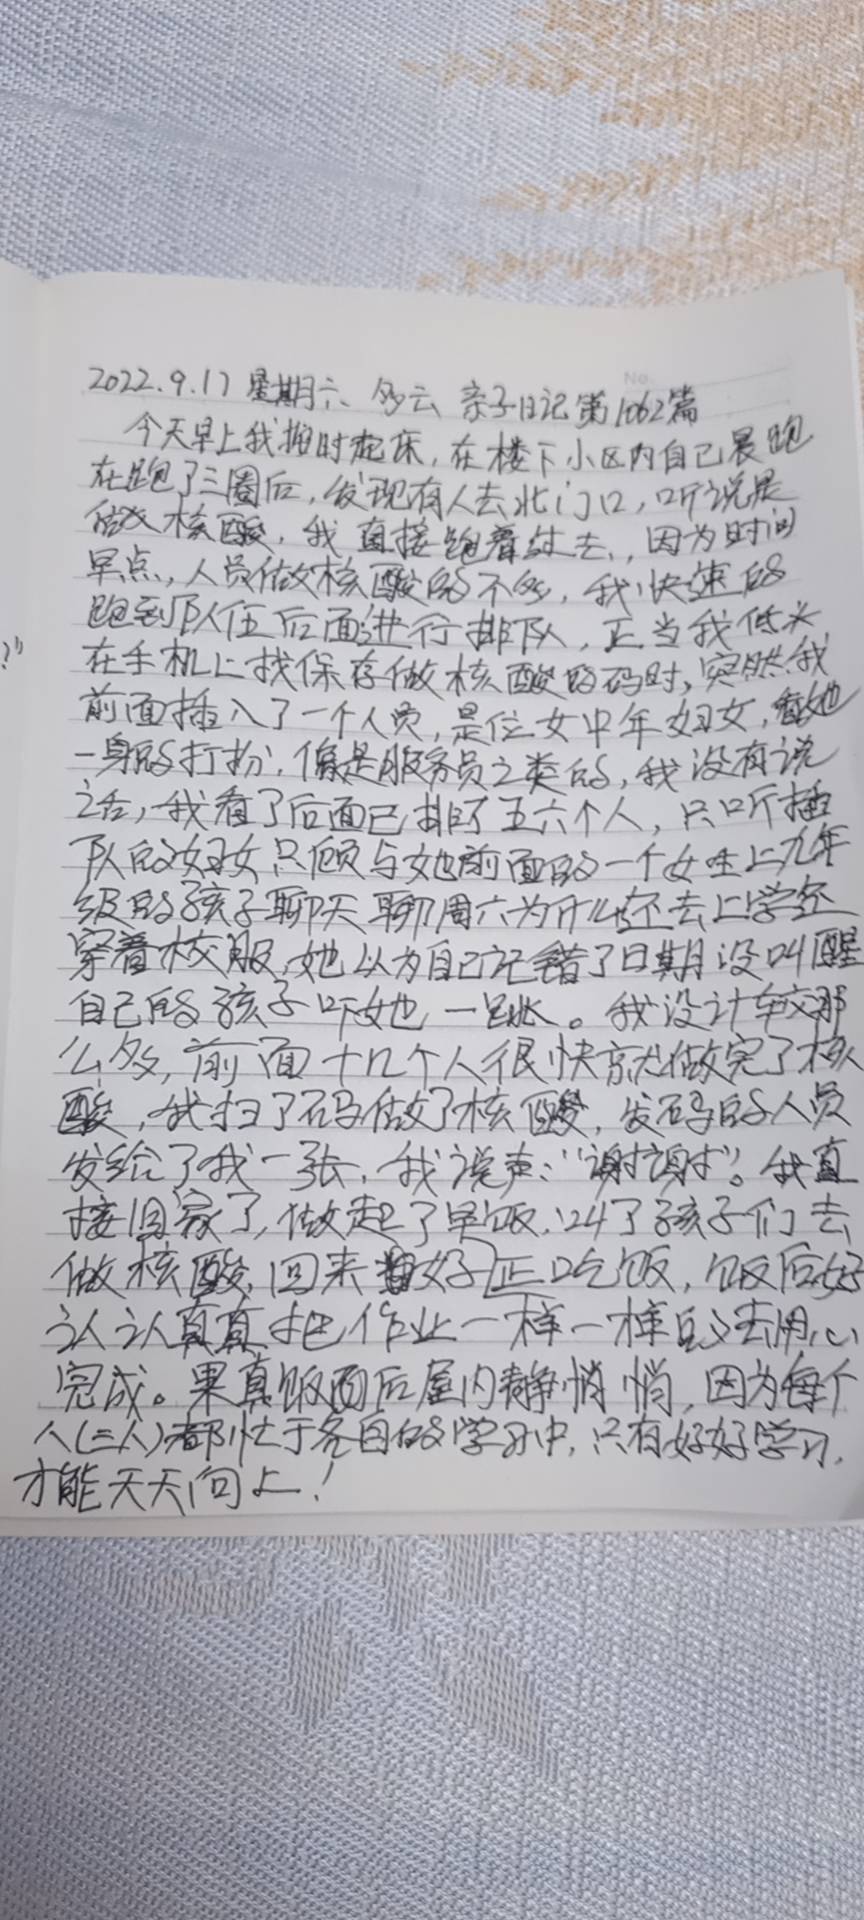 No.
2022.9.17 星期六 多云 亲子日记第1062篇
今天早上我按时起床,在楼下小区内自己晨跑
在跑了三圈后,发现有人去北门口,听说是
做核酸,我直接跑着过去,因为时间
早点,人员做核酸的不多,我快速的
跑到队伍后面进行排队,正当我低头
在手机上找保存做核酸的码时,突然我
前面插入了一个人员,是位女中年妇女,看她
一身的打扮,像是服务员之类的,我没有说
话,我看了后面已排了五六个人,只听插
队的妇女只顾与她前面的一个女生上九年
级的孩子聊天聊周六为什么还去上学还
穿着校服,她以为自己记错了日期没叫醒
自己的孩子吓她一跳。我没计较那
么多,前面十几个人很快就做完了核
酸,我扫了码做了核酸,发码的人员
发给了我一张,我说声:“谢谢”。我直
接回家了,做起了早饭,叫了孩子们去
做核酸,回来好正吃饭,饭后好
认认真真把作业一样一样的去用心
完成。果真饭后屋内静悄悄,因为每个
人(三人)都忙于各自的学习中,只有好好学习,
才能天天向上!